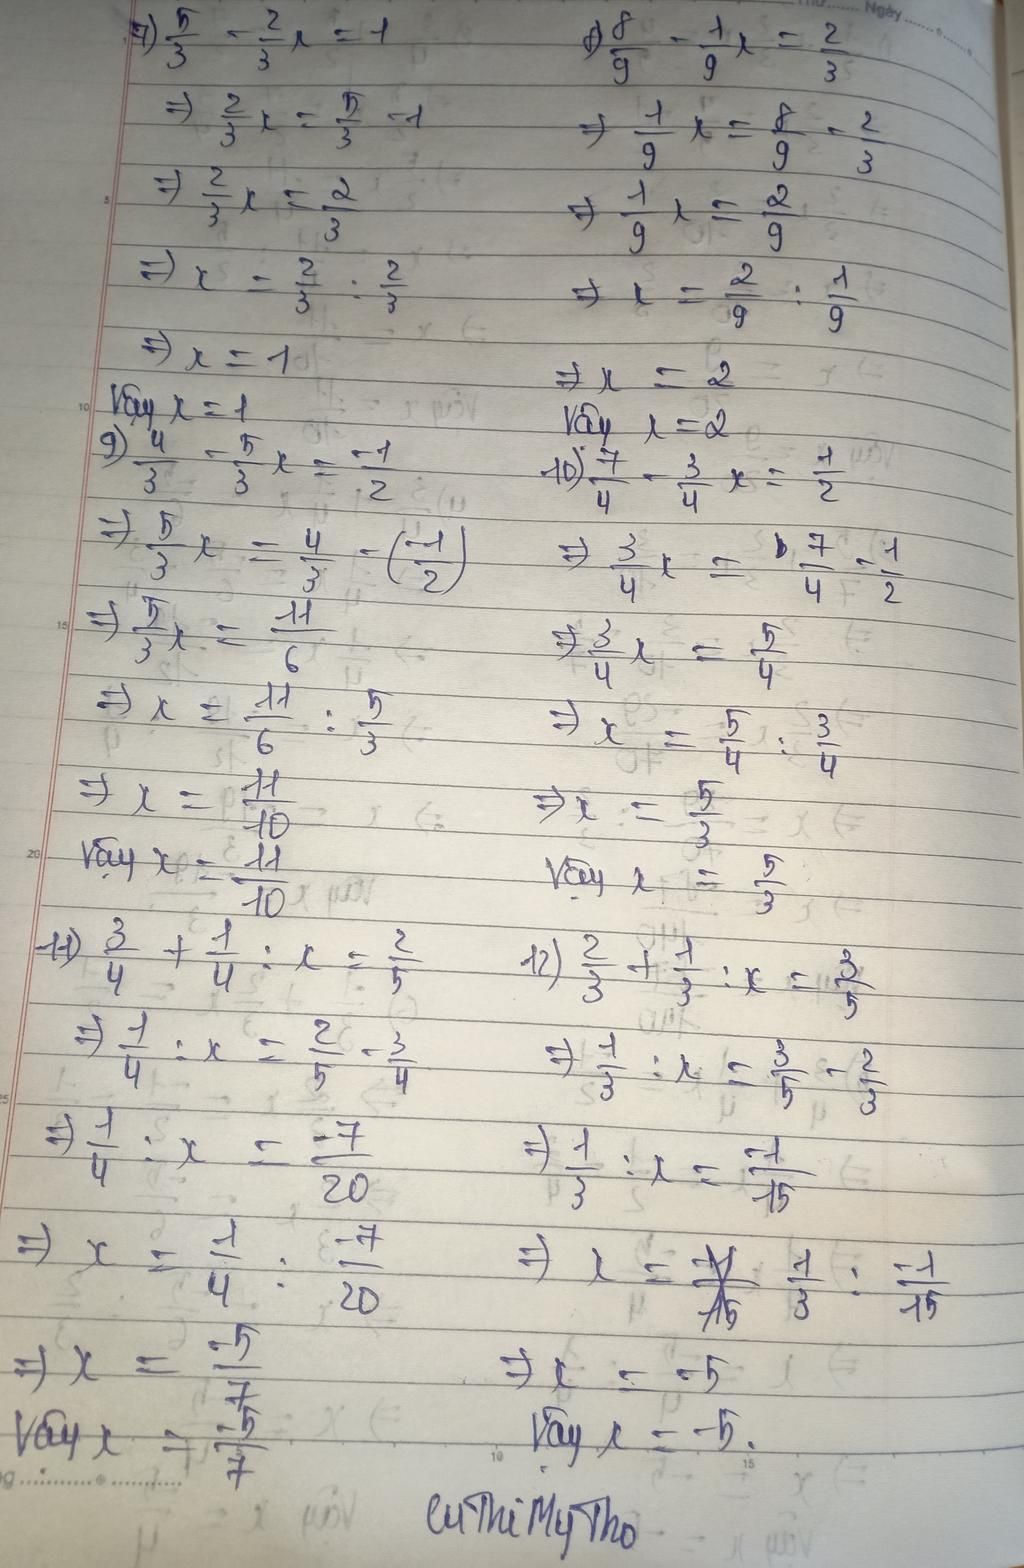 Ngày
7) 5/3 - 2/3 x = 1
=) 2/3 x = 5/3 - 1
=) 2/3 x = 2/3
=) x = 2/3 : 2/3
=) x = 1
Vậy x = 1
8) 8/9 - 1/9 x = 2/3
=) 1/9 x = 8/9 - 2/3
=) 1/9 x = 2/9
=) x = 2/9 : 1/9
=) x = 2
Vậy x = 2
9) 4/3 - 5/3 x = -1/2
=) 5/3 x = 4/3 - (-1/2)
=) 5/3 x = 11/6
=) x = 11/6 : 5/3
=) x = 11/10
Vậy x = 11/10
10) 7/4 - 3/4 x = 1/2
=) 3/4 x = 7/4 - 1/2
=) 3/4 x = 5/4
=) x = 5/4 : 3/4
=) x = 5/3
Vậy x = 5/3
11) 3/4 + 1/4 : x = 2/5
=) 1/4 : x = 2/5 - 3/4
=) 1/4 : x = -7/20
=) x = 1/4 : -7/20
=) x = -5/7
Vậy x = -5/7
12) 2/3 + 1/3 : x = 3/5
=) 1/3 : x = 3/5 - 2/3
=) 1/3 : x = -1/15
=) x = 1/3 : -1/15
=) x = -5
Vậy x = -5.
CuThiMyTho